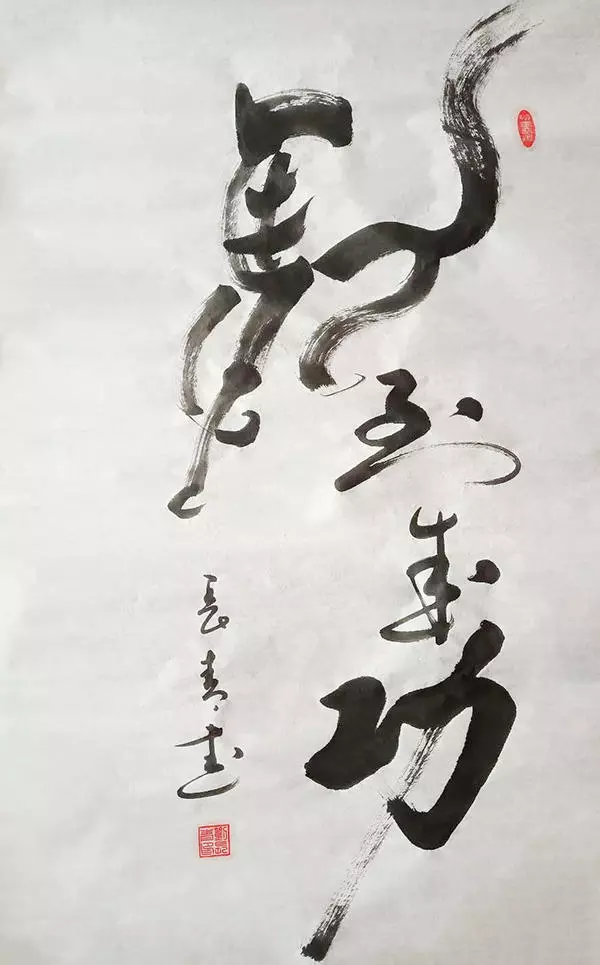 馬到成功
長青